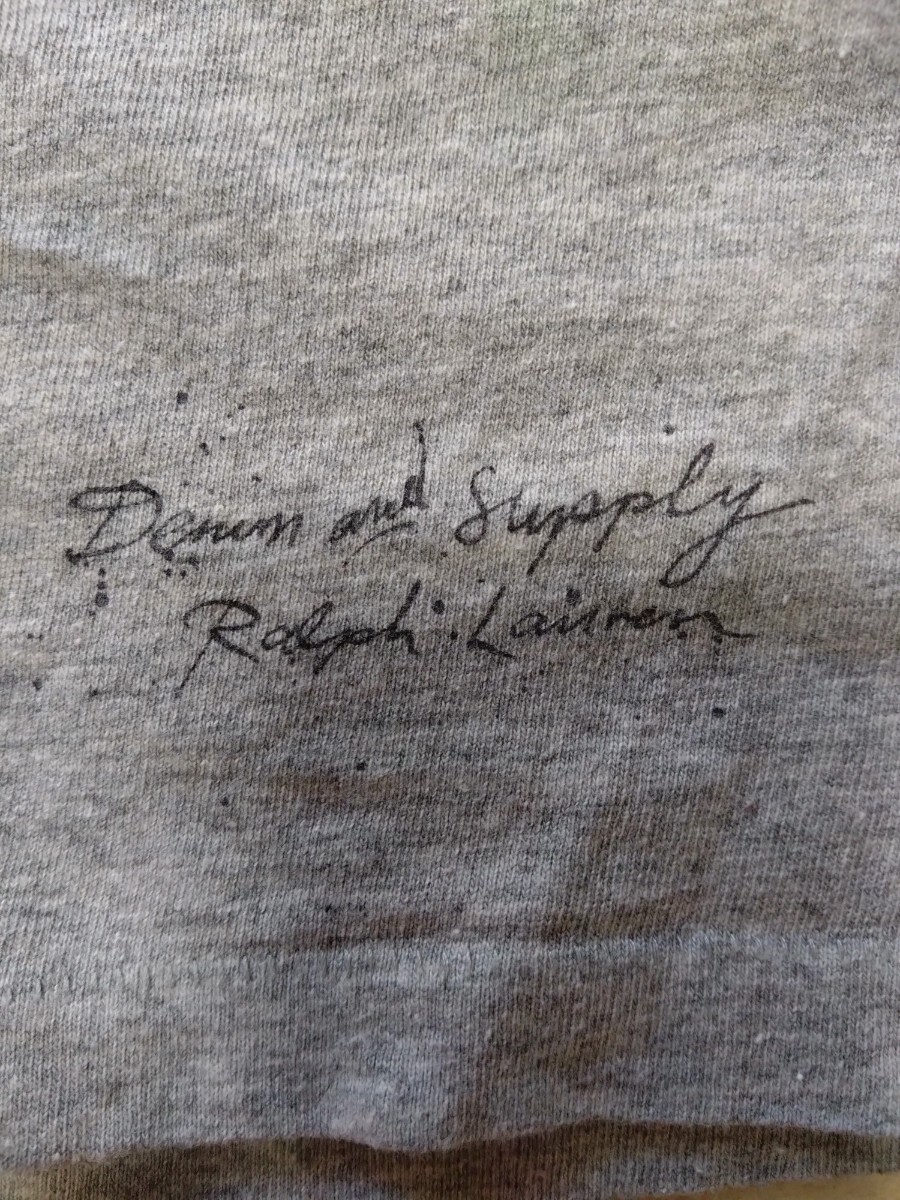 Denim and Supply
Ralph Lauren